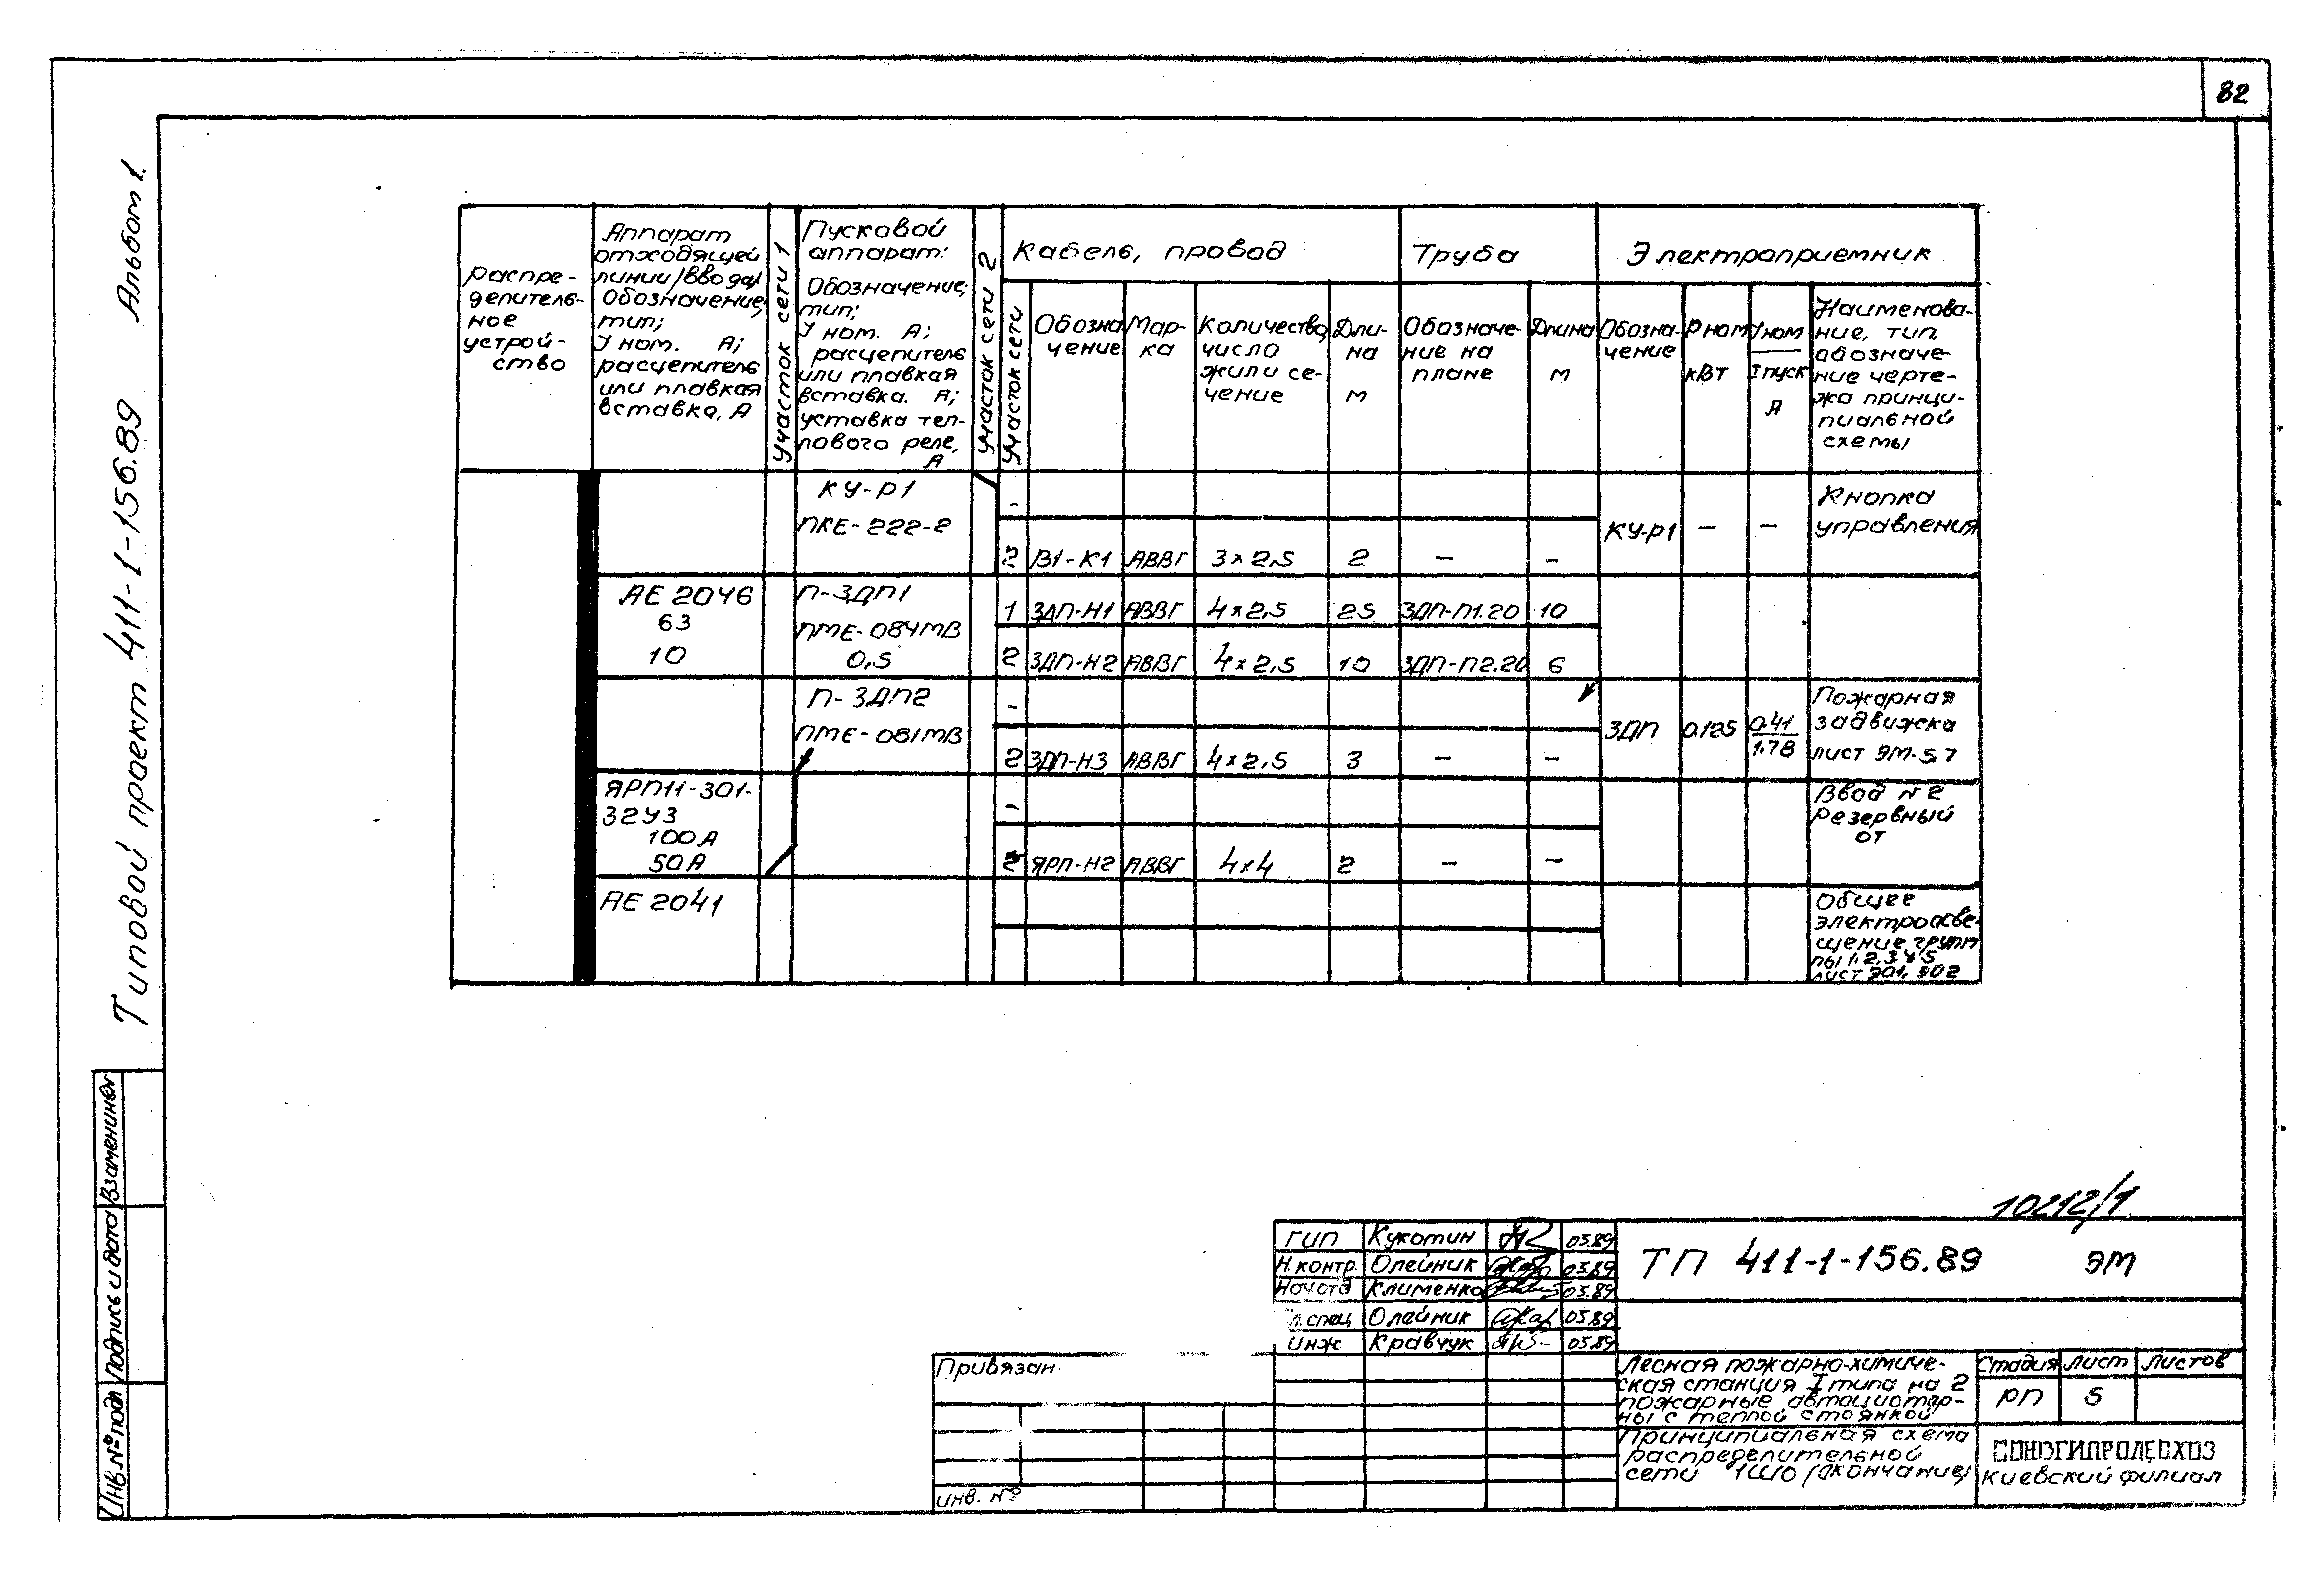 82
Типовой проект 411-1-156.89 Альбом 1.
Распре-
делитель-
ное
устрой-
ство
Аппарат
отходящей
линии/ввода/
Обозначение,
тип;
У ном. А;
расцепитель
или плавкая
вставка, А
участок сети 1
Пусковой
аппарат:
Обозначение;
тип;
У ном. А;
расцепитель
или плавкая
вставка. А;
уставка теп-
лового реле,
А
участок сети 2
участок сети
Кабель, провод
Обозна
чение
Мар-
ка
Количество,
число
жил и се-
чение
Дли-
на
м
Труба
Обозначе-
ние на
плане
Длина
м
Электроприемник
Обозна-
чение
Рном
кВт
Уном
Iпуск
А
Наименова-
ние, тип,
обозначе-
ние черте-
жа принци-
пиальной
схемы
КУ-Р1
ПКЕ-222-2
2 В1-К1 АВВГ 3×2,5 2 — —
КУ-Р1 — —
Кнопка
управления
АЕ 2046
63
10
П-ЗДП1
ПМЕ-084МВ
0,5
1 ЗДП-Н1 АВВГ 4×2,5 25 ЗДП-П1.20 10
2 ЗДП-Н2 АВВГ 4×2,5 10 ЗДП-П2.20 6
П-ЗДП2
ПМЕ-081МВ
-
2 ЗДП-Н3 АВВГ 4×2,5 3 — —
ЗДП 0.125 0.41
1.78
Пожарная
задвижка
лист ЭМ-5,7
ЯРП11-301-
32У3
100А
50А
-
2 ЯРП-Н2 АВВГ 4×4 2 — —
Ввод №2
Резервный
от
АЕ 2041
Общее
электроосве-
щение груп
пы 1,2,3 4 5
лист ЭО1, ЭО2
10212/1
ГИП Кукотин 03.89
Н.контр. Олейник 03.89
Нач отд Клименко 03.89
л.спец Олейник 03.89
Инж Кравчук 03.89
ТП 411-1-156.89 ЭМ
Привязан
Инв. №
Лесная пожарно-химиче-
ская станция I типа на 2
пожарные автоцистер-
ны с теплой стоянкой
Стадия Лист Листов
РП 5
Принципиальная схема
распределительной
сети 1ШО (окончание)
СОЮЗГИПРОЛЕСХОЗ
Киевский филиал
Взам.инв№
Подпись и дата
Инв.№ подл